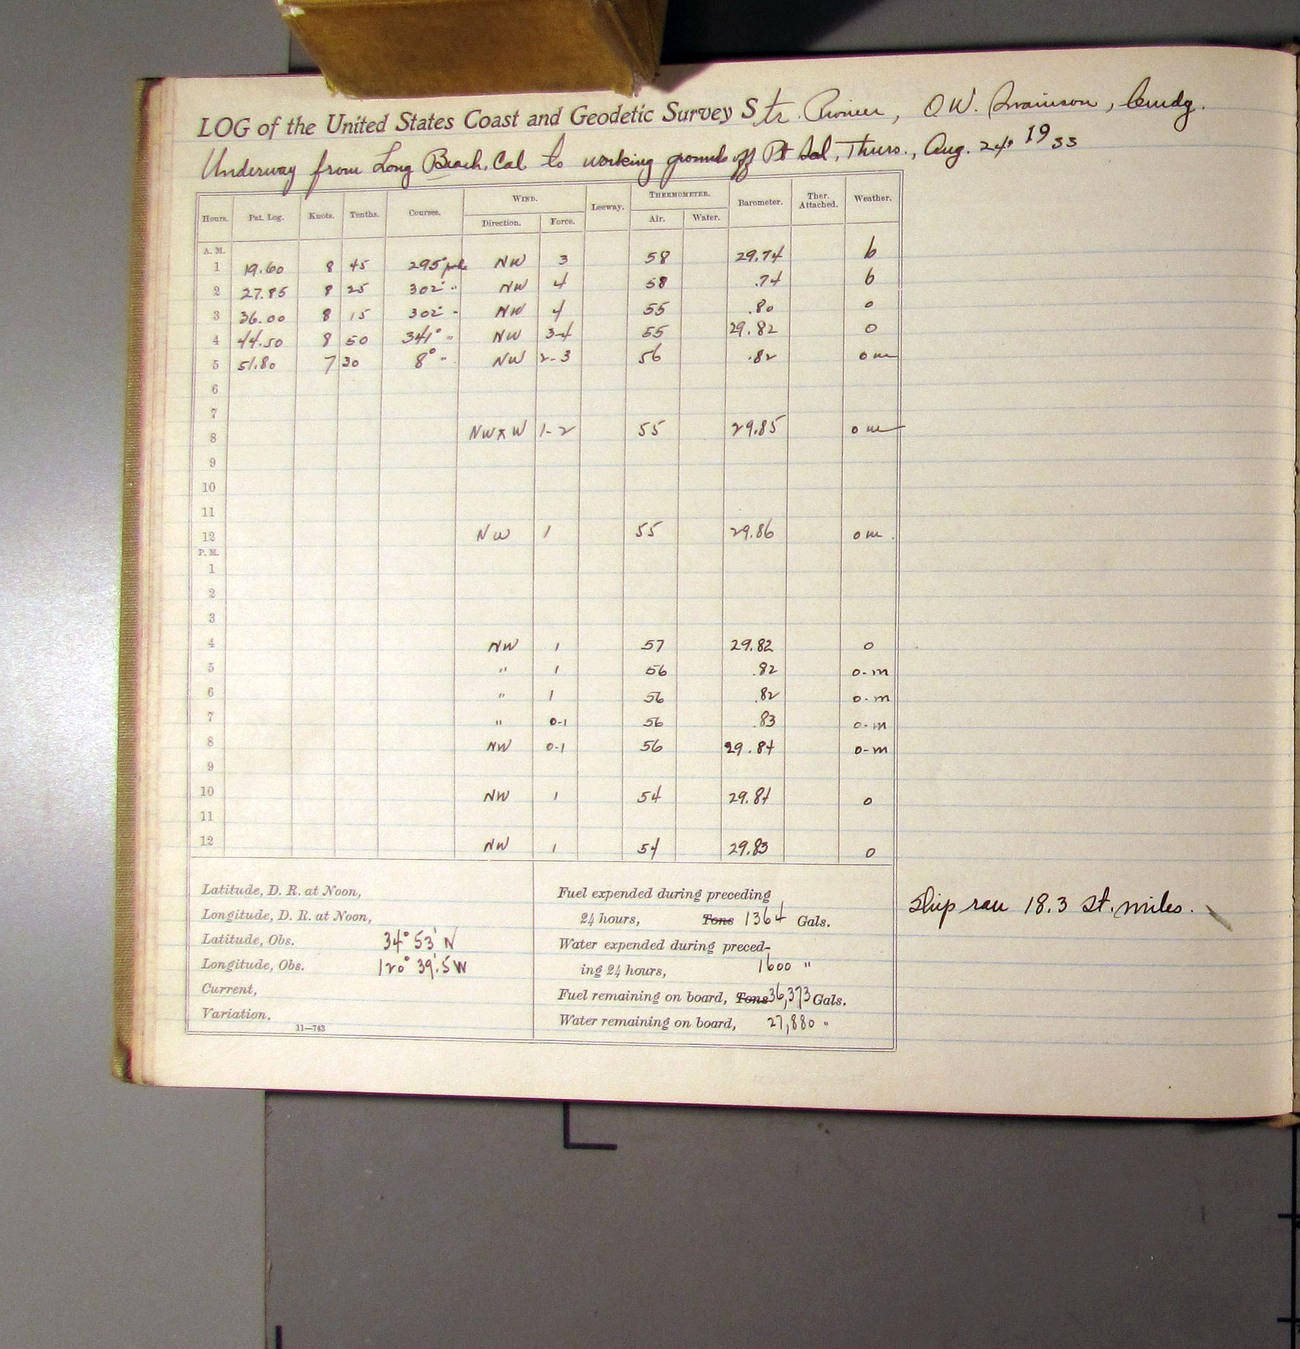 LOG of the United States Coast and Geodetic Survey Str. Pioneer, O.W. Swainson, Comdg.
Underway from Long Beach, Cal to working grounds off Pt Sal, Thurs., Aug. 24, 1933
Hours. Pat. Log. Knots. Tenths. Courses. WIND. Leeway. THERMOMETER. Barometer. Ther. Attached. Weather.
Direction. Force. Air. Water.
A. M.
1 19.60 8 45 295° NW 3 58 29.74 b
2 27.85 8 25 302° " NW 4 58 .74 b
3 36.00 8 15 302° " NW 4 55 .80 o
4 44.50 8 50 341° " NW 3-4 55 29.82 o
5 51.80 7 30 8° " NW 2-3 56 .82 o m
6
7
8 NWxW 1-2 55 29.85 o m
9
10
11
12 NW 1 55 29.86 o m.
P. M.
1
2
3
4 NW 1 57 29.82 o
5 " 1 56 .82 o-m
6 " 1 56 .82 o-m
7 " 0-1 56 .83 o-m
8 NW 0-1 56 29.84 o-m
9
10 NW 1 54 29.84 o
11
12 NW 1 54 29.83 o
Latitude, D. R. at Noon,
Longitude, D. R. at Noon,
Latitude, Obs. 34° 53' N
Longitude, Obs. 120° 39'.5 W
Current,
Variation,
11—743
Fuel expended during preceding
24 hours, Tons 1364 Gals.
Water expended during preced-
ing 24 hours, 1600 "
Fuel remaining on board, Tons 36,373 Gals.
Water remaining on board, 27,880 "
Ship ran 18.3 st. miles.